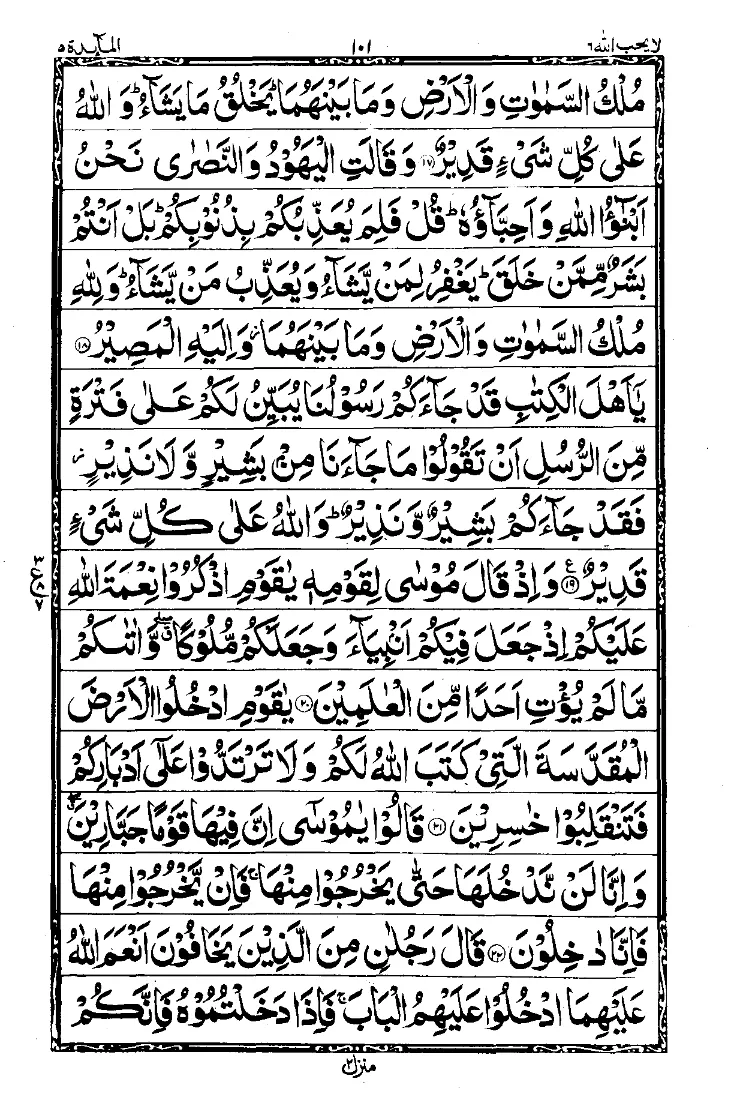 لا يحب الله ٦ ١٠١ المآىِٕدة ٥
مُلْكُ السَّمٰوٰتِ وَالْاَرْضِ وَمَا بَيْنَهُمَا ؕ يَخْلُقُ مَا يَشَآءُ ؕ وَ اللّٰهُ
عَلٰى كُلِّ شَىْءٍ قَدِيْرٌ ﴿۱۷﴾ وَقَالَتِ الْيَهُوْدُ وَالنَّصٰرٰى نَحْنُ
اَبْنٰٓؤُا اللّٰهِ وَاَحِبَّآؤُهٗ ؕ قُلْ فَلِمَ يُعَذِّبُكُمْ بِذُنُوْبِكُمْ ؕ بَلْ اَنْتُمْ
بَشَرٌ مِّمَّنْ خَلَقَ ؕ يَغْفِرُ لِمَنْ يَّشَآءُ وَيُعَذِّبُ مَنْ يَّشَآءُ ؕ وَلِلّٰهِ
مُلْكُ السَّمٰوٰتِ وَالْاَرْضِ وَمَا بَيْنَهُمَا ؗ وَاِلَيْهِ الْمَصِيْرُ ﴿۱۸﴾
يٰۤاَهْلَ الْكِتٰبِ قَدْ جَآءَكُمْ رَسُوْلُنَا يُبَيِّنُ لَكُمْ عَلٰى فَتْرَةٍ
مِّنَ الرُّسُلِ اَنْ تَقُوْلُوْا مَا جَآءَنَا مِنْۢ بَشِيْرٍ وَّلَا نَذِيْرٍ ؗ
فَقَدْ جَآءَكُمْ بَشِيْرٌ وَّنَذِيْرٌ ؕ وَاللّٰهُ عَلٰى كُلِّ شَىْءٍ
قَدِيْرٌ ﴿۱۹﴾ ع وَاِذْ قَالَ مُوْسٰى لِقَوْمِهٖ يٰقَوْمِ اذْكُرُوْا نِعْمَةَ اللّٰهِ
عَلَيْكُمْ اِذْ جَعَلَ فِيْكُمْ اَنْۢبِيَآءَ وَجَعَلَكُمْ مُّلُوْكًا ۖۗ وَّاٰتٰىكُمْ
مَّا لَمْ يُؤْتِ اَحَدًا مِّنَ الْعٰلَمِيْنَ ﴿۲۰﴾ يٰقَوْمِ ادْخُلُوا الْاَرْضَ
الْمُقَدَّسَةَ الَّتِىْ كَتَبَ اللّٰهُ لَكُمْ وَلَا تَرْتَدُّوْا عَلٰٓى اَدْبَارِكُمْ
فَتَنْقَلِبُوْا خٰسِرِيْنَ ﴿۲۱﴾ قَالُوْا يٰمُوْسٰٓى اِنَّ فِيْهَا قَوْمًا جَبَّارِيْنَ ۖۗ
وَاِنَّا لَنْ نَّدْخُلَهَا حَتّٰى يَخْرُجُوْا مِنْهَا ۚ فَاِنْ يَّخْرُجُوْا مِنْهَا
فَاِنَّا دٰخِلُوْنَ ﴿۲۲﴾ قَالَ رَجُلٰنِ مِنَ الَّذِيْنَ يَخَافُوْنَ اَنْعَمَ اللّٰهُ
عَلَيْهِمَا ادْخُلُوْا عَلَيْهِمُ الْبَابَ ۚ فَاِذَا دَخَلْتُمُوْهُ فَاِنَّكُمْ
منزل ٢